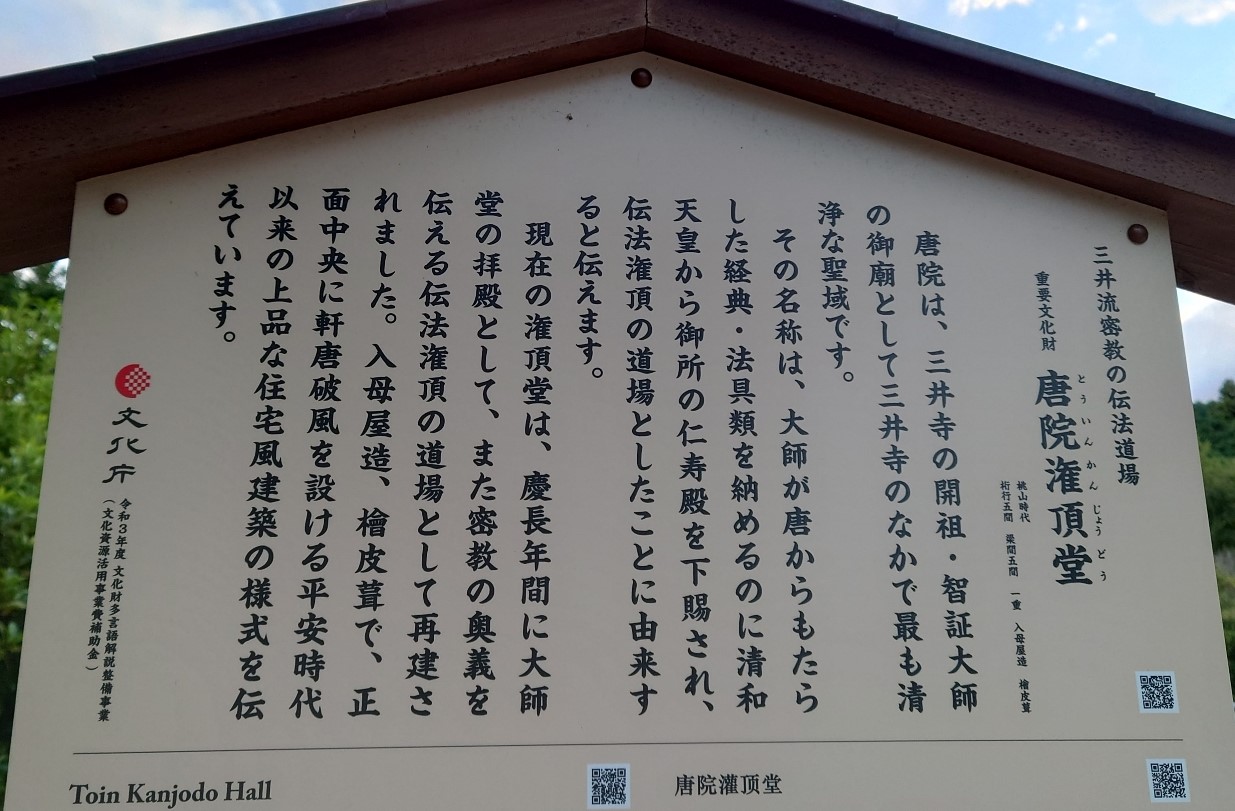 三井流密教の伝法道場
とういんかんじょうどう
重要文化財 唐院潅頂堂
桃山時代
桁行五間 梁間五間 一重 入母屋造 檜皮葺
唐院は、三井寺の開祖・智証大師
の御廟として三井寺のなかで最も清
浄な聖域です。
その名称は、大師が唐からもたら
した経典・法具類を納めるのに清和
天皇から御所の仁寿殿を下賜され、
伝法潅頂の道場としたことに由来す
ると伝えます。
現在の潅頂堂は、慶長年間に大師
堂の拝殿として、また密教の奥義を
伝える伝法潅頂の道場として再建さ
れました。入母屋造、檜皮葺で、正
面中央に軒唐破風を設ける平安時代
以来の上品な住宅風建築の様式を伝
えています。
文化庁
令和3年度 文化財多言語解説整備事業
（文化資源活用事業費補助金）
Toin Kanjodo Hall
唐院灌顶堂